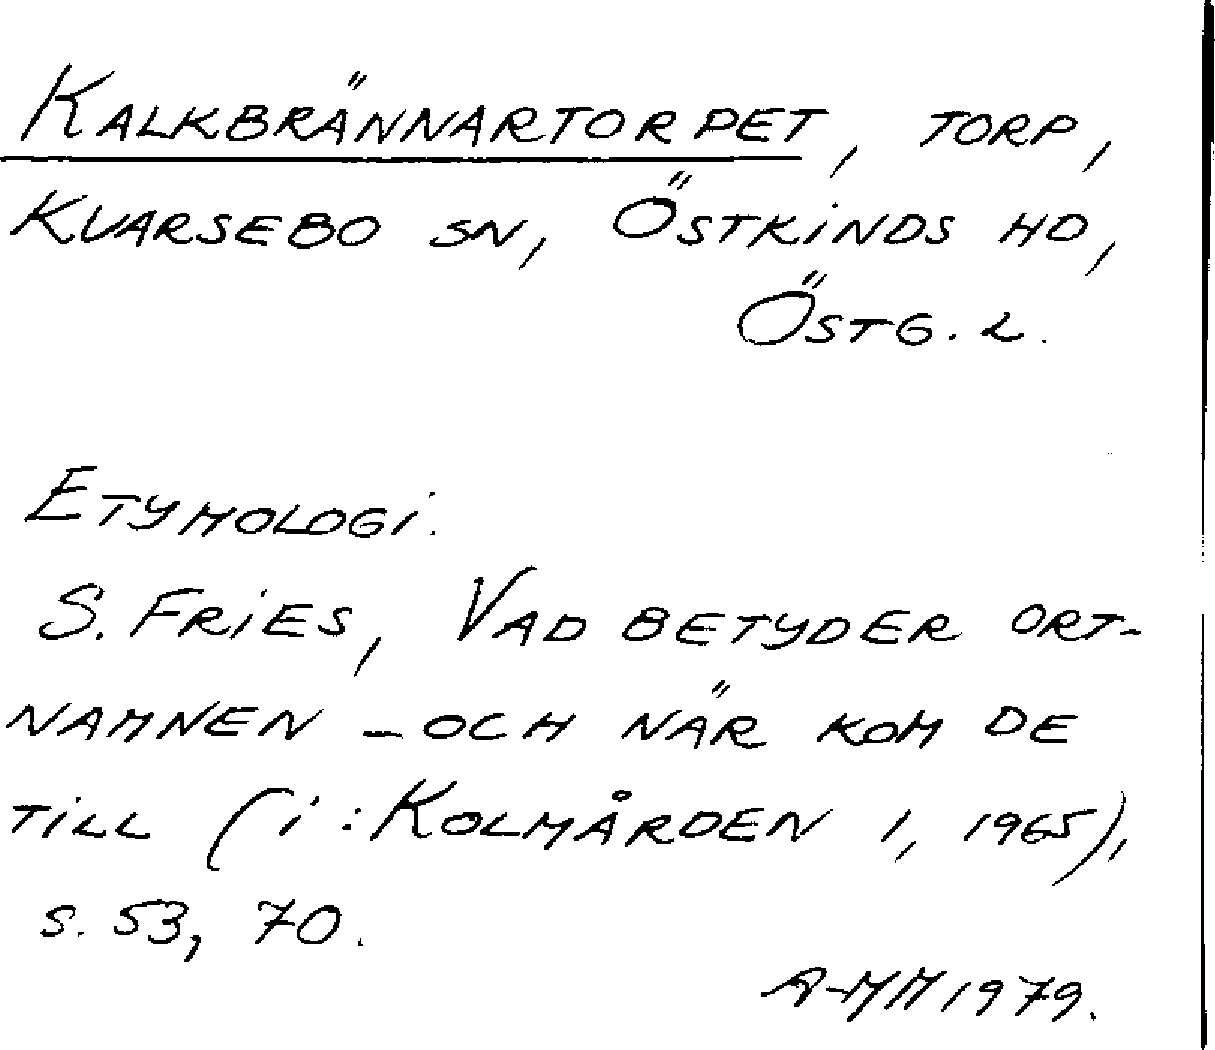 KALKBRÄNNARTORPET, TORP,
KVARSEBO SN, ÖSTKINDS HD,
ÖSTG. L.
ETYMOLOGI.
S. FRIES, VAD BETYDER ORT-
NAMNEN - OCH NÄR KOM DE
TILL (I: KOLMÅRDEN 1, 1965),
S. 53, 70.
A-MM 1979.